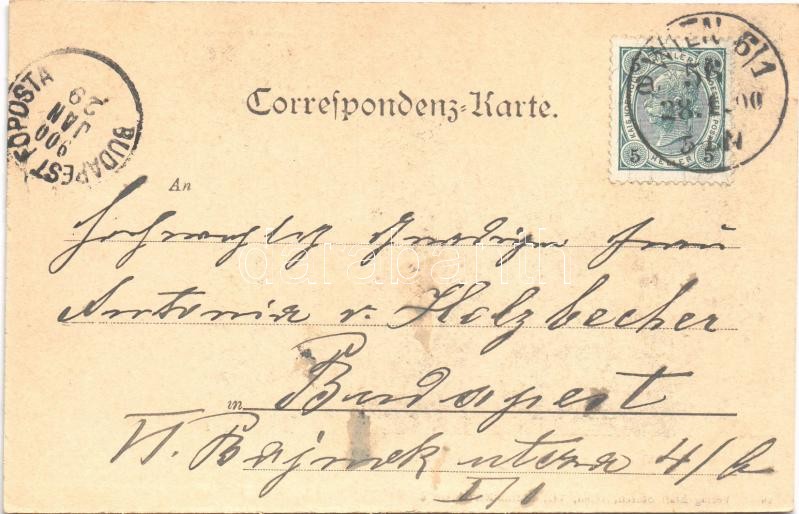 WIEN 6/1
28. 1. 00
5 HELLER 5
BUDAPEST FŐPOSTA
900
JAN
29
Correspondenz-Karte.
An
Hochwohlg. Gnädige Frau
Antonia v. Holzbecher
in Budapest
VI. Bajnok utcza 4/b
I/1
darabanth